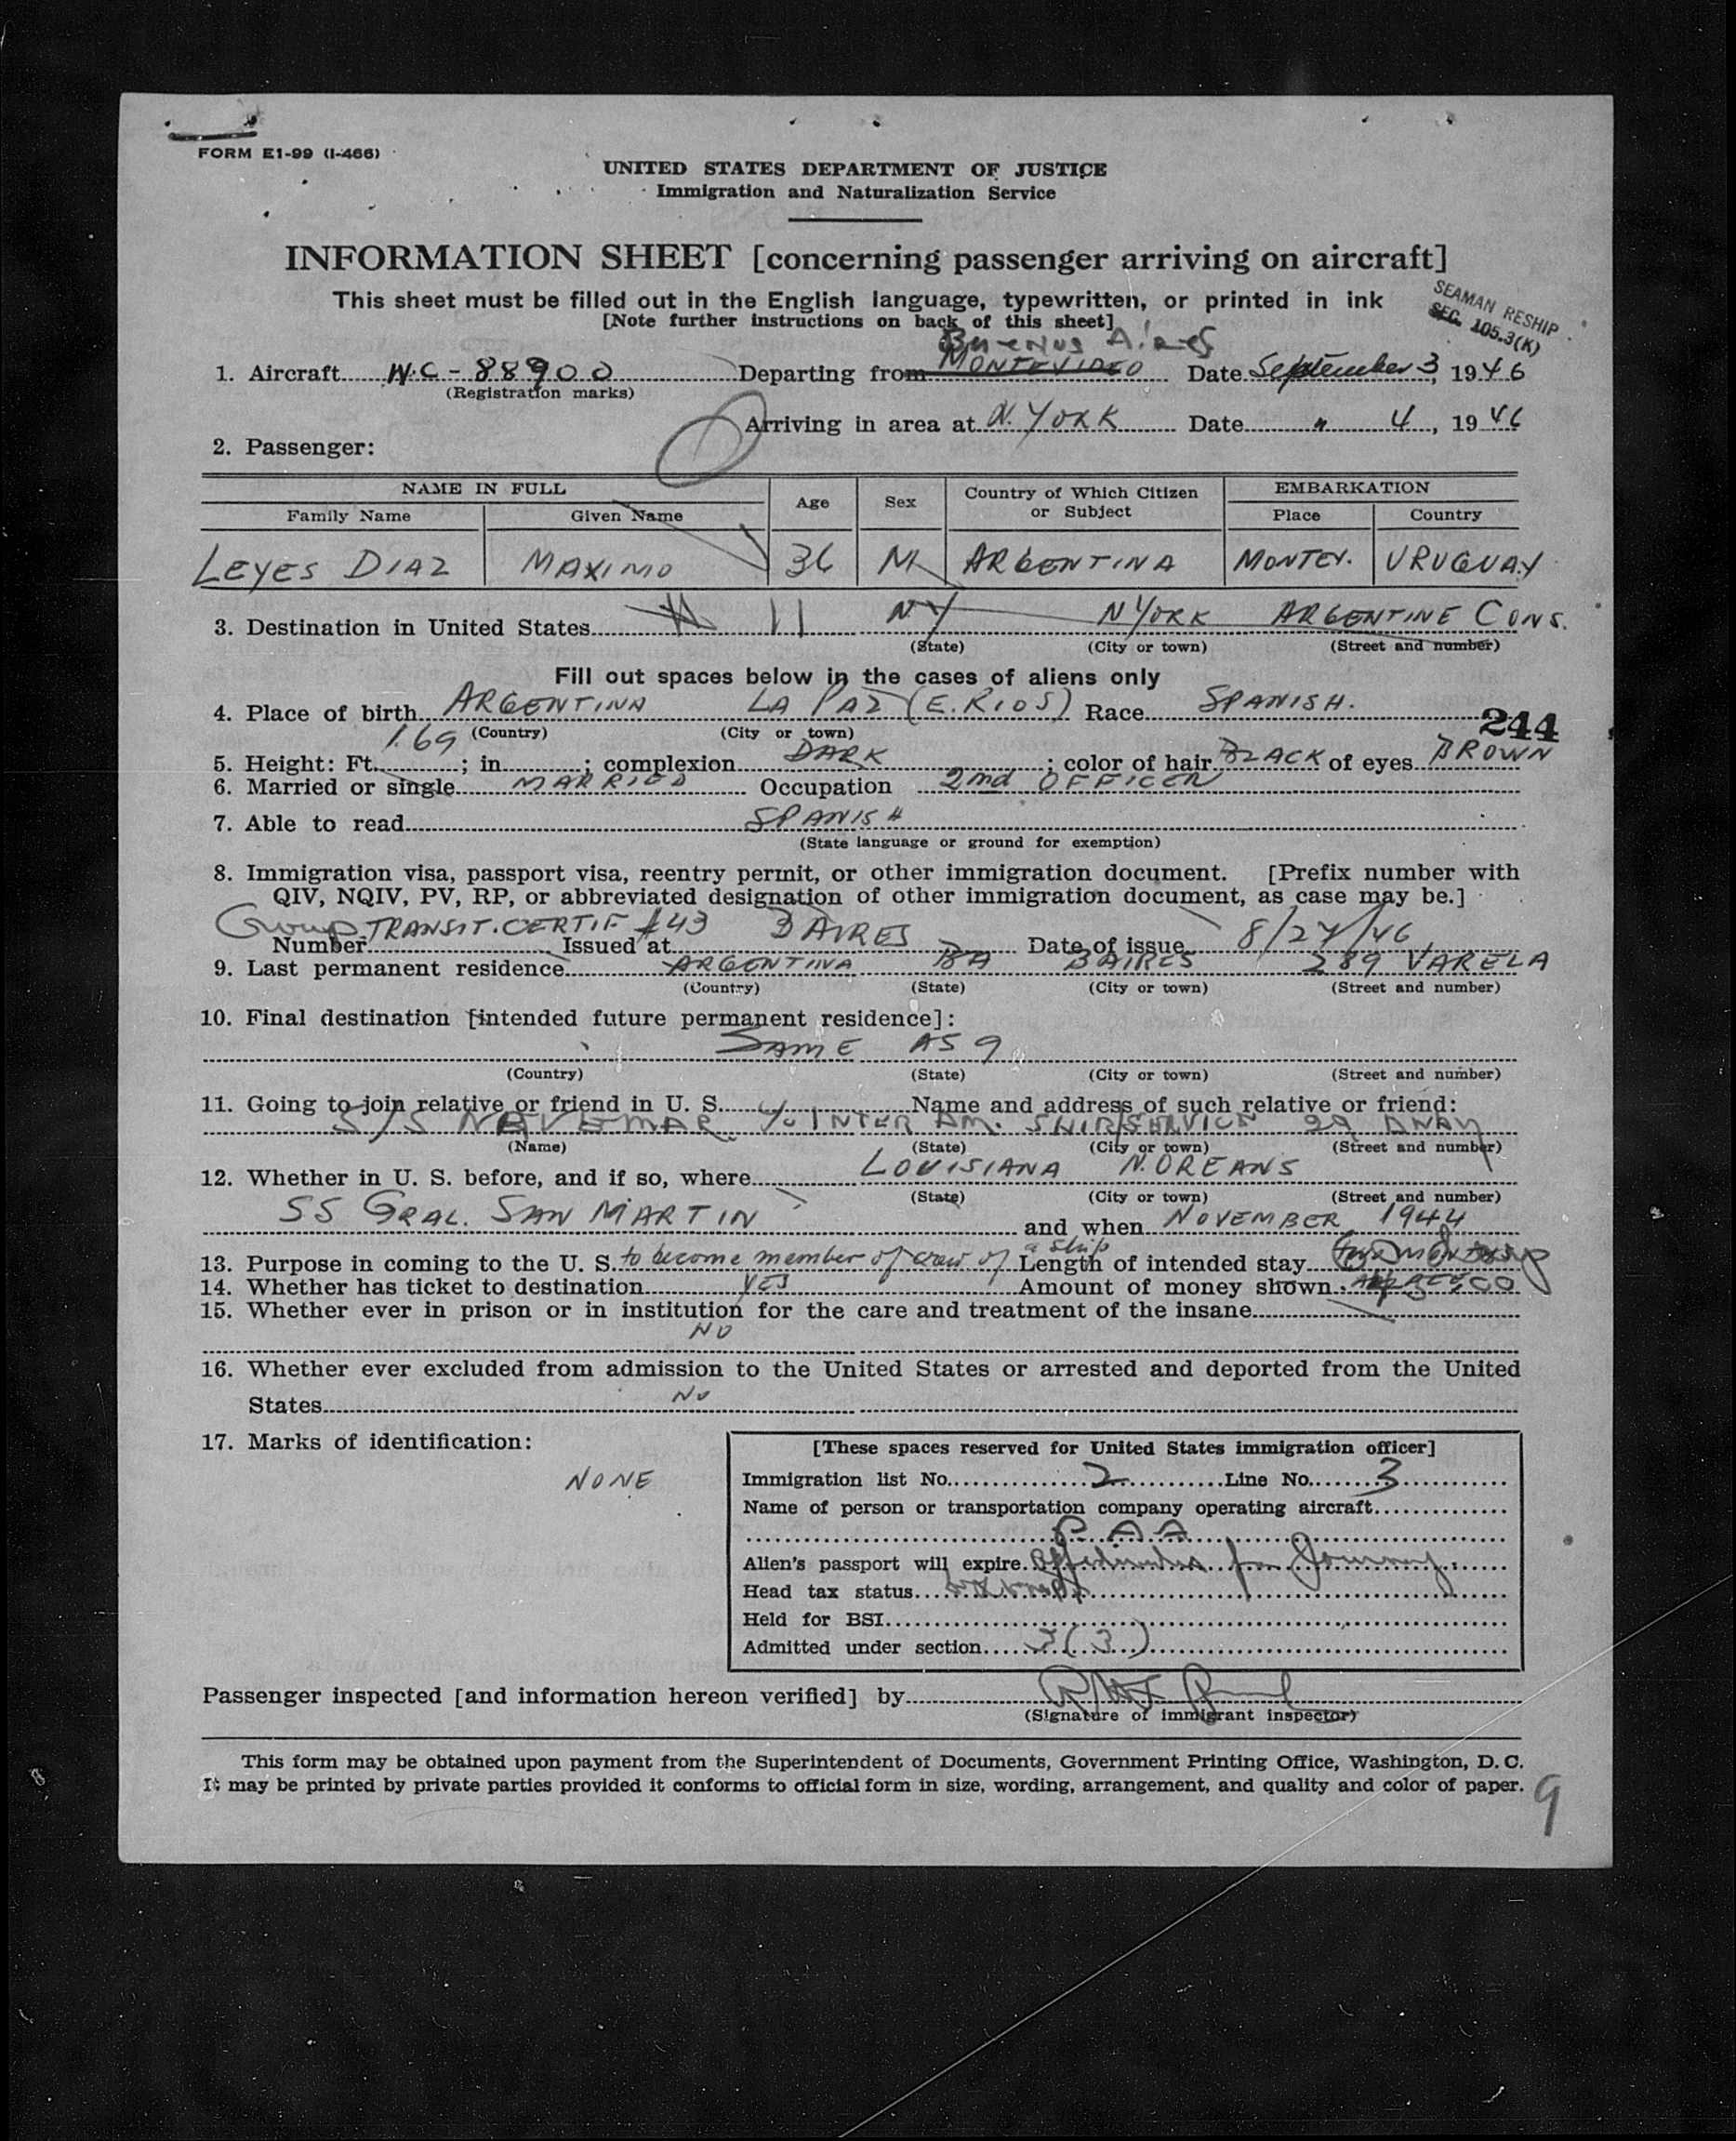 FORM E1-99 (I-466)
UNITED STATES DEPARTMENT OF JUSTICE
Immigration and Naturalization Service
INFORMATION SHEET [concerning passenger arriving on aircraft]
This sheet must be filled out in the English language, typewritten, or printed in ink
[Note further instructions on back of this sheet]
SEAMAN RESHIP
SEC. 105.3(K)
Buenos Aires
1. Aircraft NC-88900 Departing from MONTEVIDEO Date September 3, 1946
(Registration marks)
Arriving in area at N. YORK Date " 4, 1946
2. Passenger:
NAME IN FULL Age Sex Country of Which Citizen or Subject EMBARKATION
Family Name Given Name Place Country
LEYES DIAZ MAXIMO 36 M ARGENTINA MONTEV. URUGUAY
3. Destination in United States 11 NY N YORK ARGENTINE CONS.
(State) (City or town) (Street and number)
Fill out spaces below in the cases of aliens only
4. Place of birth ARGENTINA LA PAZ (E. RIOS) Race SPANISH.
(Country) (City or town)
244
5. Height: Ft. 1.69; in.; complexion DARK; color of hair BLACK of eyes BROWN
6. Married or single MARRIED Occupation 2nd OFFICER
7. Able to read SPANISH
(State language or ground for exemption)
8. Immigration visa, passport visa, reentry permit, or other immigration document. [Prefix number with
QIV, NQIV, PV, RP, or abbreviated designation of other immigration document, as case may be.]
Number Group TRANSIT. CERTIF #43 Issued at B AIRES Date of issue 8/27/46
9. Last permanent residence ARGENTINA BA B AIRES 289 VARELA
(Country) (State) (City or town) (Street and number)
10. Final destination [intended future permanent residence]:
SAME AS 9
(Country) (State) (City or town) (Street and number)
11. Going to join relative or friend in U. S. Name and address of such relative or friend:
S/S NAVEMAR. % INTER AM. SHIP SERVICE 29 BWAY
(Name) (State) (City or town) (Street and number)
12. Whether in U. S. before, and if so, where LOUISIANA N. OREANS
(State) (City or town) (Street and number)
SS GRAL. SAN MARTIN and when NOVEMBER 1944
13. Purpose in coming to the U. S. to become member of crew of a ship Length of intended stay
14. Whether has ticket to destination YES Amount of money shown
15. Whether ever in prison or in institution for the care and treatment of the insane
NO
16. Whether ever excluded from admission to the United States or arrested and deported from the United
States No
17. Marks of identification:
NONE
[These spaces reserved for United States immigration officer]
Immigration list No. 2 Line No. 3
Name of person or transportation company operating aircraft
P. A A
Alien's passport will expire
Head tax status
Held for BSI
Admitted under section 3(3)
Passenger inspected [and information hereon verified] by
(Signature of immigrant inspector)
This form may be obtained upon payment from the Superintendent of Documents, Government Printing Office, Washington, D. C.
It may be printed by private parties provided it conforms to official form in size, wording, arrangement, and quality and color of paper.
9